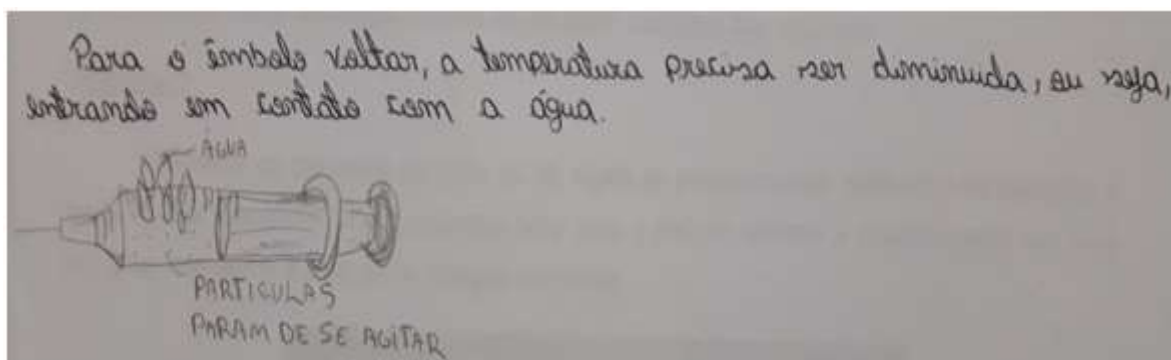 Para o êmbolo voltar, a temperatura precisa ser diminuida, ou seja,
entrando em contato com a água.
ÁGUA
PARTICULAS
PARAM DE SE AGITAR